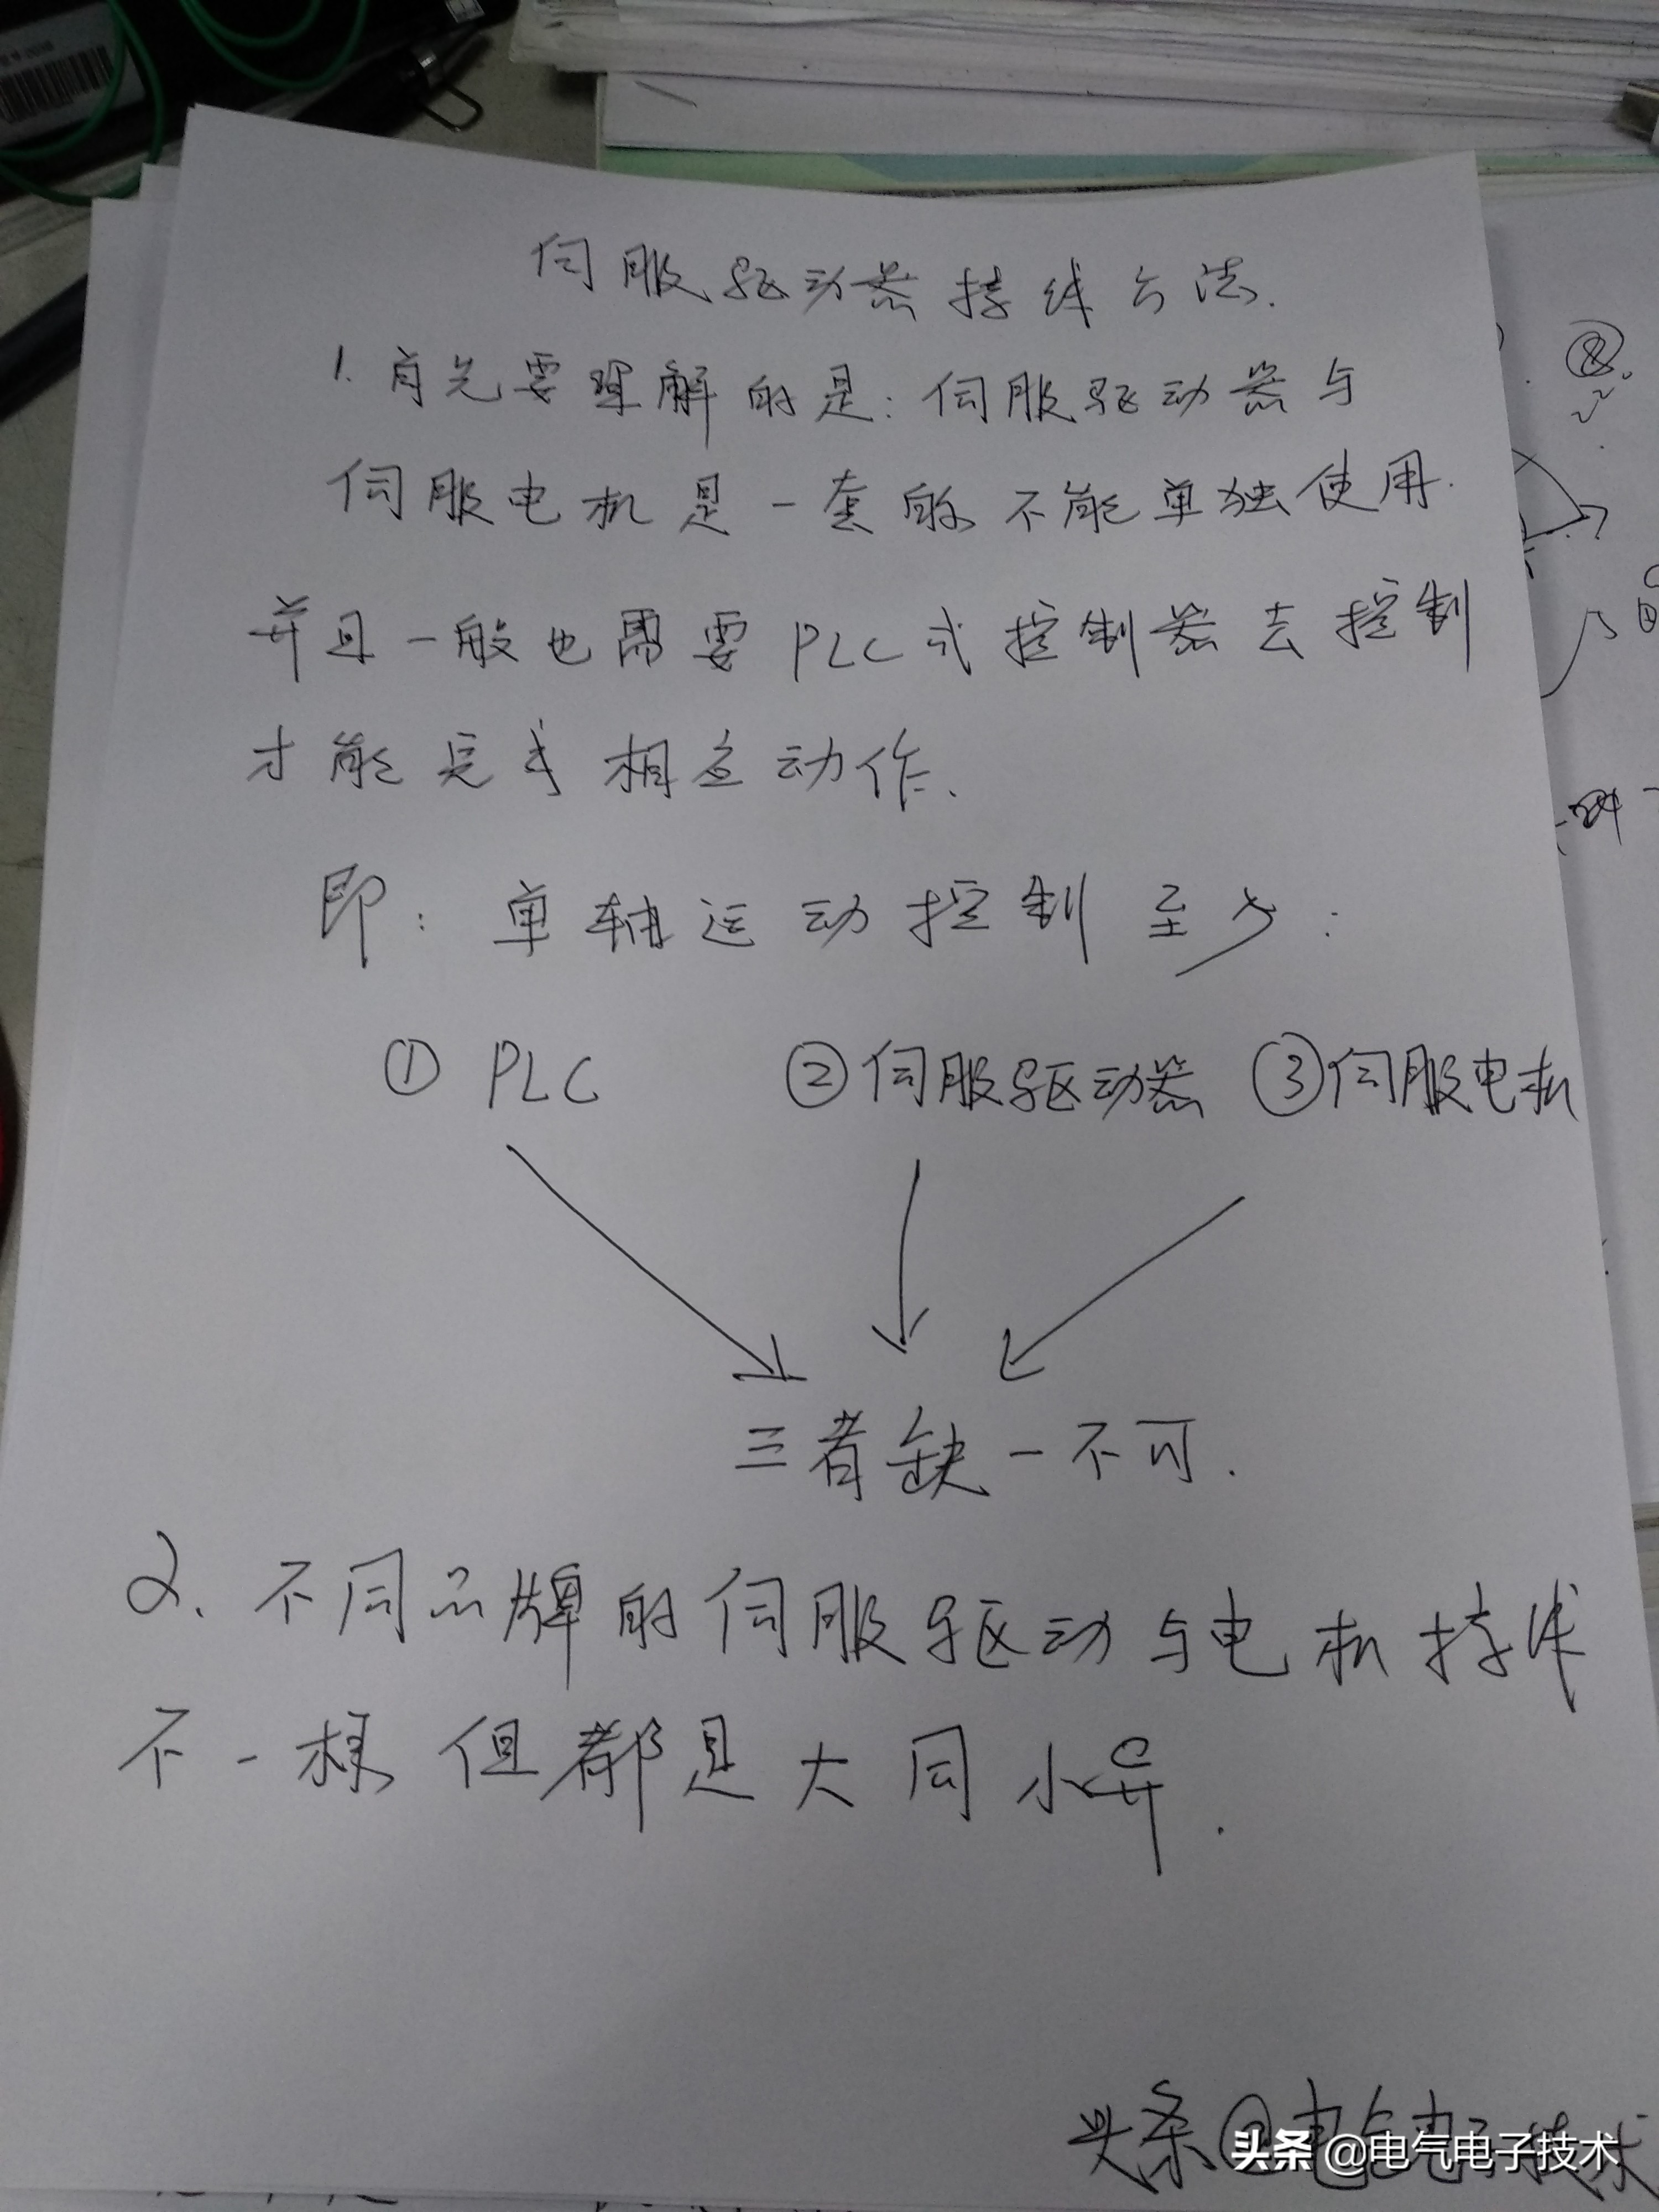 伺服驱动器接线方法.
1. 首先要理解的是: 伺服驱动器与
伺服电机是一套的 不能单独使用.
并且一般也需要 PLC 或控制器去控制
才能完成相应动作.
即: 单轴运动控制至少:
① PLC ②伺服驱动器 ③伺服电机
三者缺一不可.
2. 不同品牌的伺服驱动与电机接线
不一样 但都是大同小异.
头条@电气电子技术
头条 @电气电子技术